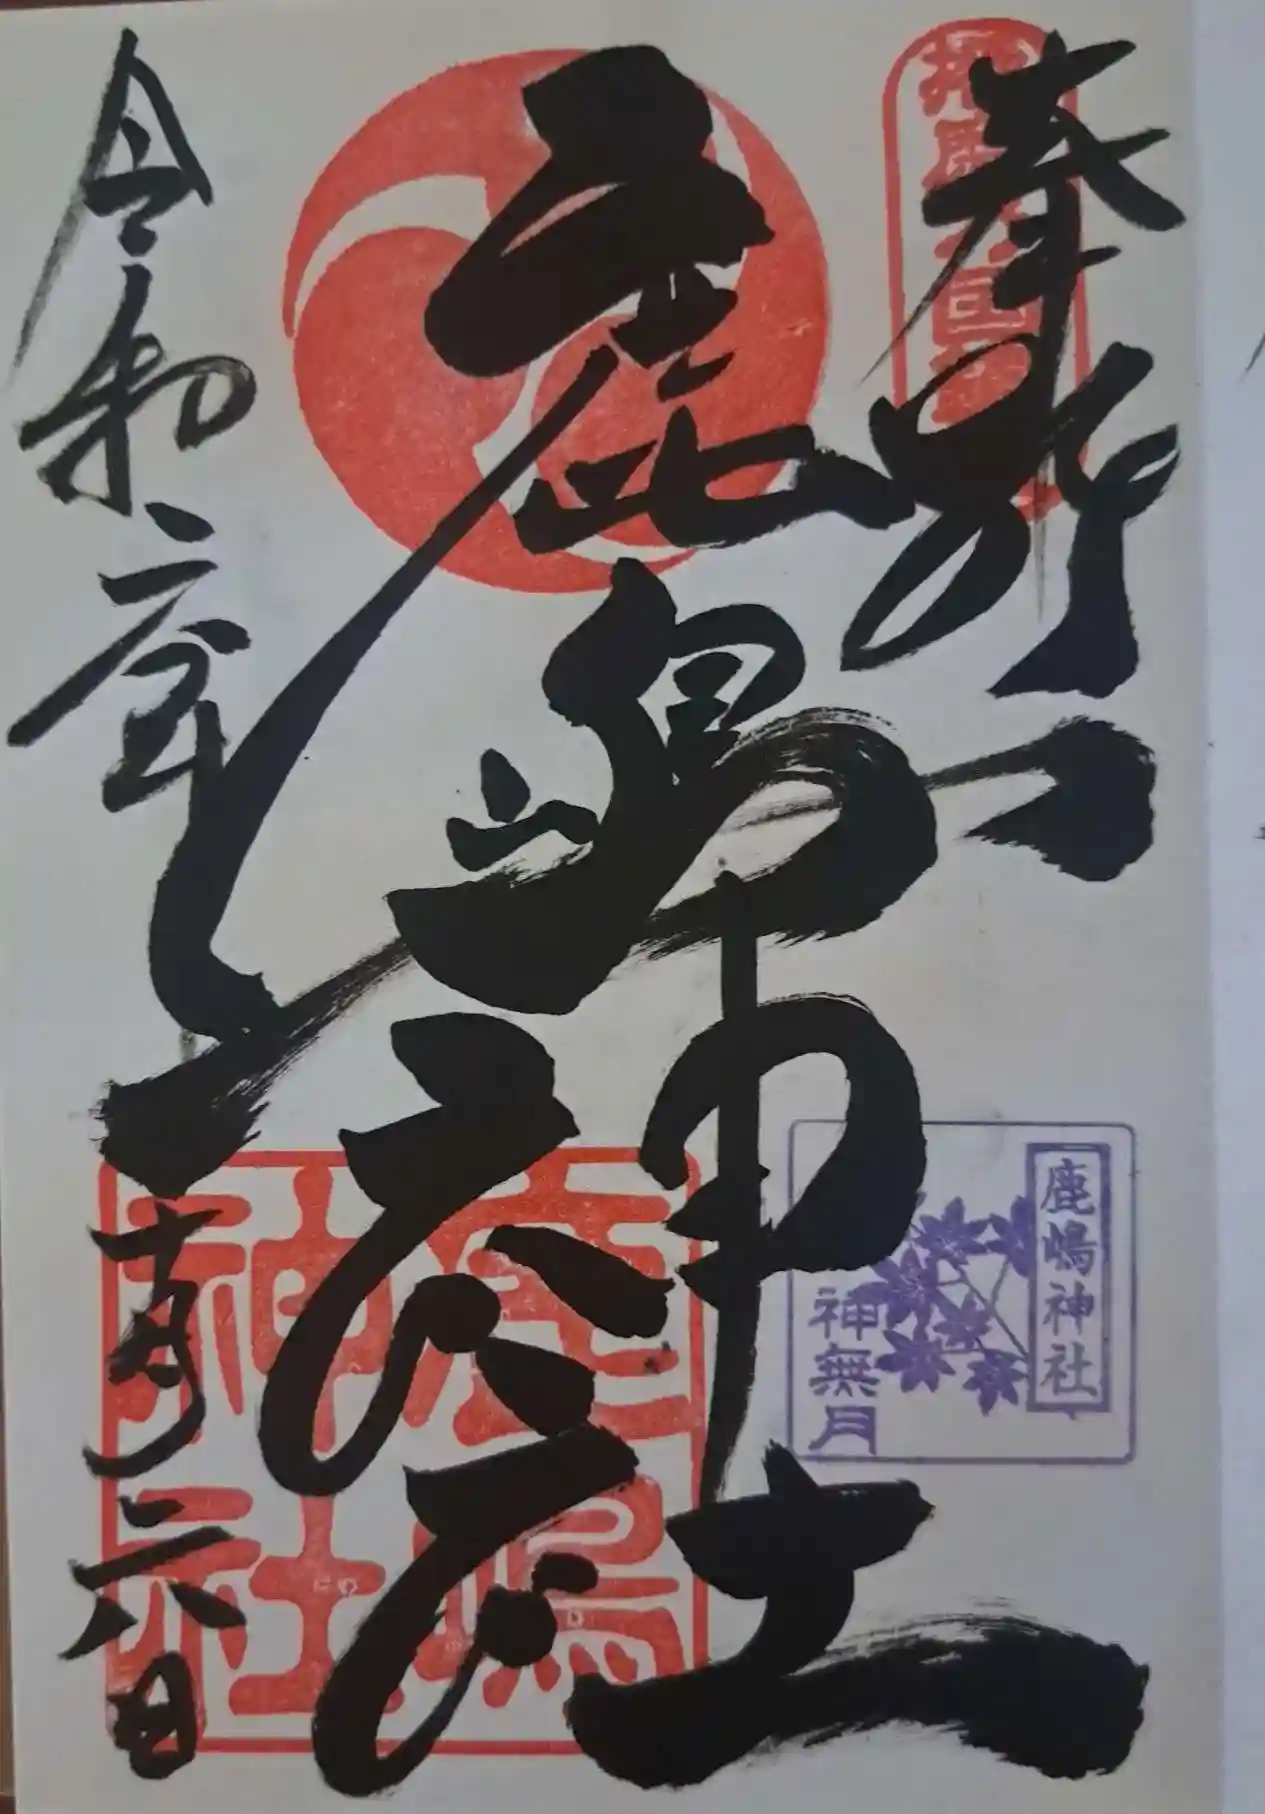 奉拝
鹿嶋神社
令和二年
十月六日
鹿嶋神社
神無月
鹿嶋神社